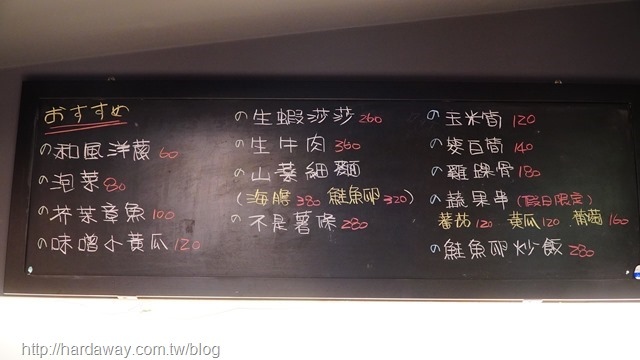 おすすめ
の和風洋蔥 60
の泡菜 80
の芥茉章魚 100
の味噌小黃瓜 120
の生蝦莎莎 260
の生牛肉 360
の山藥細麵
(海膽 380 鮭魚卵 320)
の不是薯條 280
の玉米筍 120
の茭白筍 140
の雞踝骨 180
の蔬果串 (假日限定)
蕃茄 120 黃瓜 120 葡萄 160
の鮭魚卵炒飯 280
http://hardaway.com.tw/blog